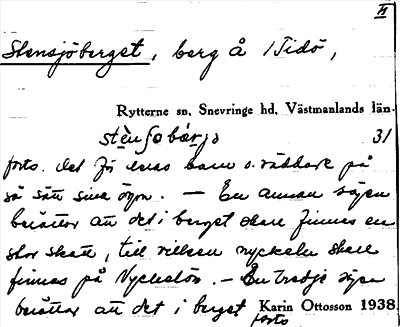 H
Stensjöberget, berg å /Tidö,
Rytterne sn. Snevringe hd. Västmanlands län.
stènʃobárjə 31
forts. det för deras barn o. räddade på
så sätt sina ögon. — En annan sägen
berättar att det i berget skall finnas en
stor skatt, till vilken nyckeln skall
finnas på Nyckelön. — En tredje sägen
berättar att det i berget Karin Ottosson 1938
forts